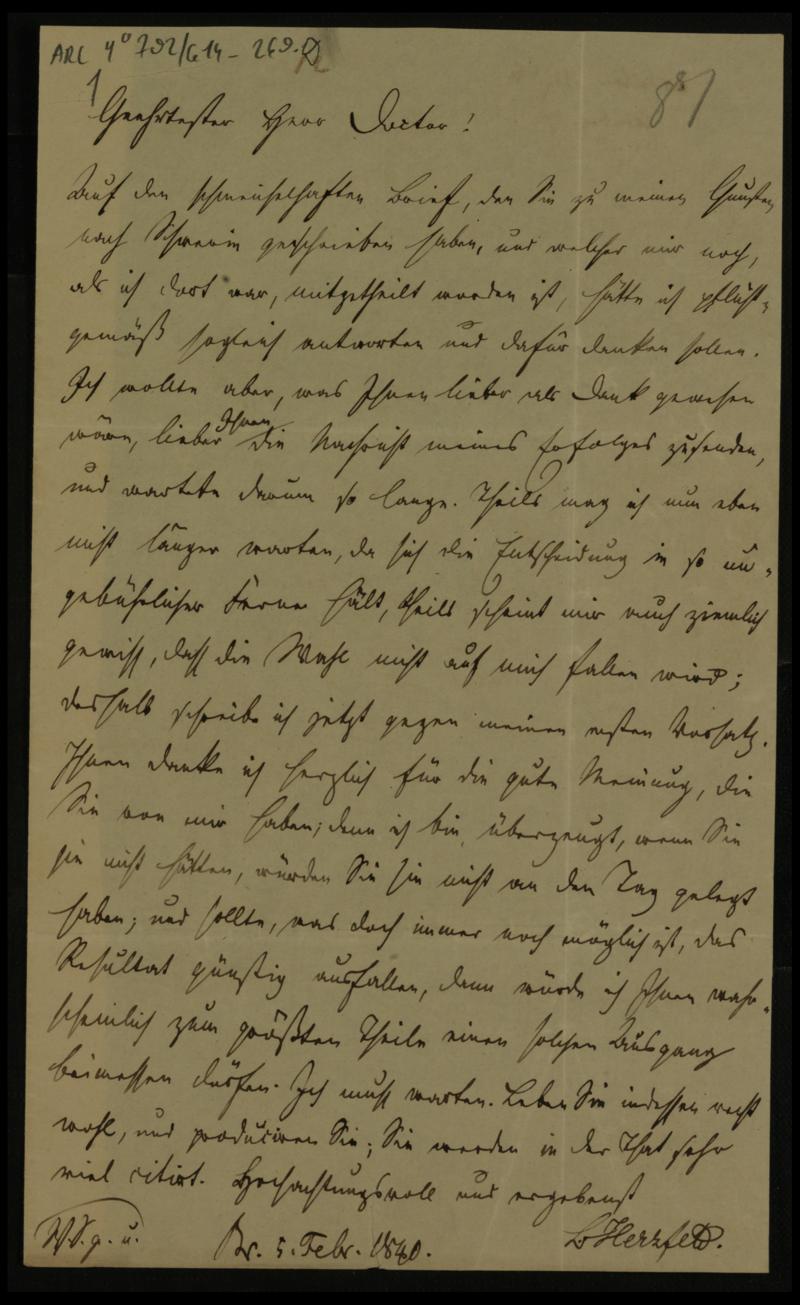 ARC 4° 792/G14-269.
1
87
Geehrtester Herr Doctor!
Auf den schmeichelhaften Brief, den Sie zu meinen Gunsten
nach Schwerin geschrieben haben, und welcher mir noch,
als ich dort war, mitgetheilt worden ist, hätte ich pflicht-
gemäß sogleich antworten und dafür danken sollen.
Ich wollte aber, was Ihnen lieber als Dank gewesen
wäre, lieber Ihnen die Nachricht meines Erfolges zusenden,
und wartete darum so lange. Theils mag ich nun eben
nicht länger warten, da sich die Entscheidung in so un-
gebührlicher Ferne hält, theils scheint mir auch ziemlich
gewiss, dass die Wahl nicht auf mich fallen wird;
deshalb schreibe ich jetzt gegen meinen ersten Vorsatz.
Ihnen danke ich herzlich für die gute Meinung, die
Sie von mir haben; denn ich bin überzeugt, wenn Sie
sie nicht hätten, würden Sie sie nicht an den Tag gelegt
haben; und sollte, was doch immer noch möglich ist, das
Resultat günstig ausfallen, dann würde ich Ihnen wahr-
scheinlich zum größten Theile einen solchen Ausgang
beimessen dürfen. Ich muss warten. Leben Sie indessen recht
wohl, und produciren Sie; Sie werden in der That sehr
viel citirt. Hochachtungsvoll und ergebenst
Br. 5. Febr. 1840. L Herzfeld.